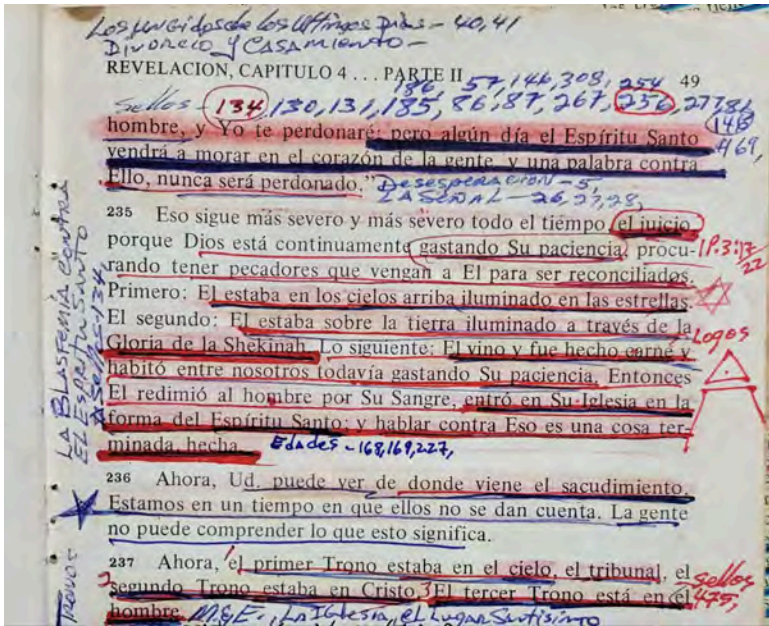 Los ungidos de los Ultimos Dias - 40,41
DIVORCIO y CASAMIENTO -
REVELACION, CAPITULO 4 . . . PARTE II 49
186, 57, 146, 308, 254
Sellos - 134, 130, 131, 185, 86, 87, 267, 256, 277,
148
169,
hombre, y Yo te perdonaré; pero algún día el Espíritu Santo
vendrá a morar en el corazón de la gente, y una palabra contra
Ello, nunca será perdonado." DESESPERACION - 5,
LA SEÑAL - 26,27,28,
235 Eso sigue más severo y más severo todo el tiempo, el juicio,
porque Dios está continuamente gastando Su paciencia, procu-
rando tener pecadores que vengan a El para ser reconciliados.
Primero: El estaba en los cielos arriba iluminado en las estrellas.
El segundo: El estaba sobre la tierra iluminado a través de la
Gloria de la Shekinah. Lo siguiente: El vino y fue hecho carne y
habitó entre nosotros todavía gastando Su paciencia. Entonces
El redimió al hombre por Su Sangre, entró en Su Iglesia en la
forma del Espíritu Santo; y hablar contra Eso es una cosa ter-
minada, hecha. Edades - 168,169,227,
1P.3:17
22
Logos
LA BLASFEMIA CONTRA
EL ESPIRITU SANTO
Sellos-134
236 Ahora, Ud. puede ver de donde viene el sacudimiento.
Estamos en un tiempo en que ellos no se dan cuenta. La gente
no puede comprender lo que esto significa.
237 Ahora, el primer Trono estaba en el cielo, el tribunal, el
2 segundo Trono estaba en Cristo. 3 El tercer Trono está en el
hombre. M.G.E., LA IGlesia, el Lugar Santisimo
Sellos
475,
TRONOS